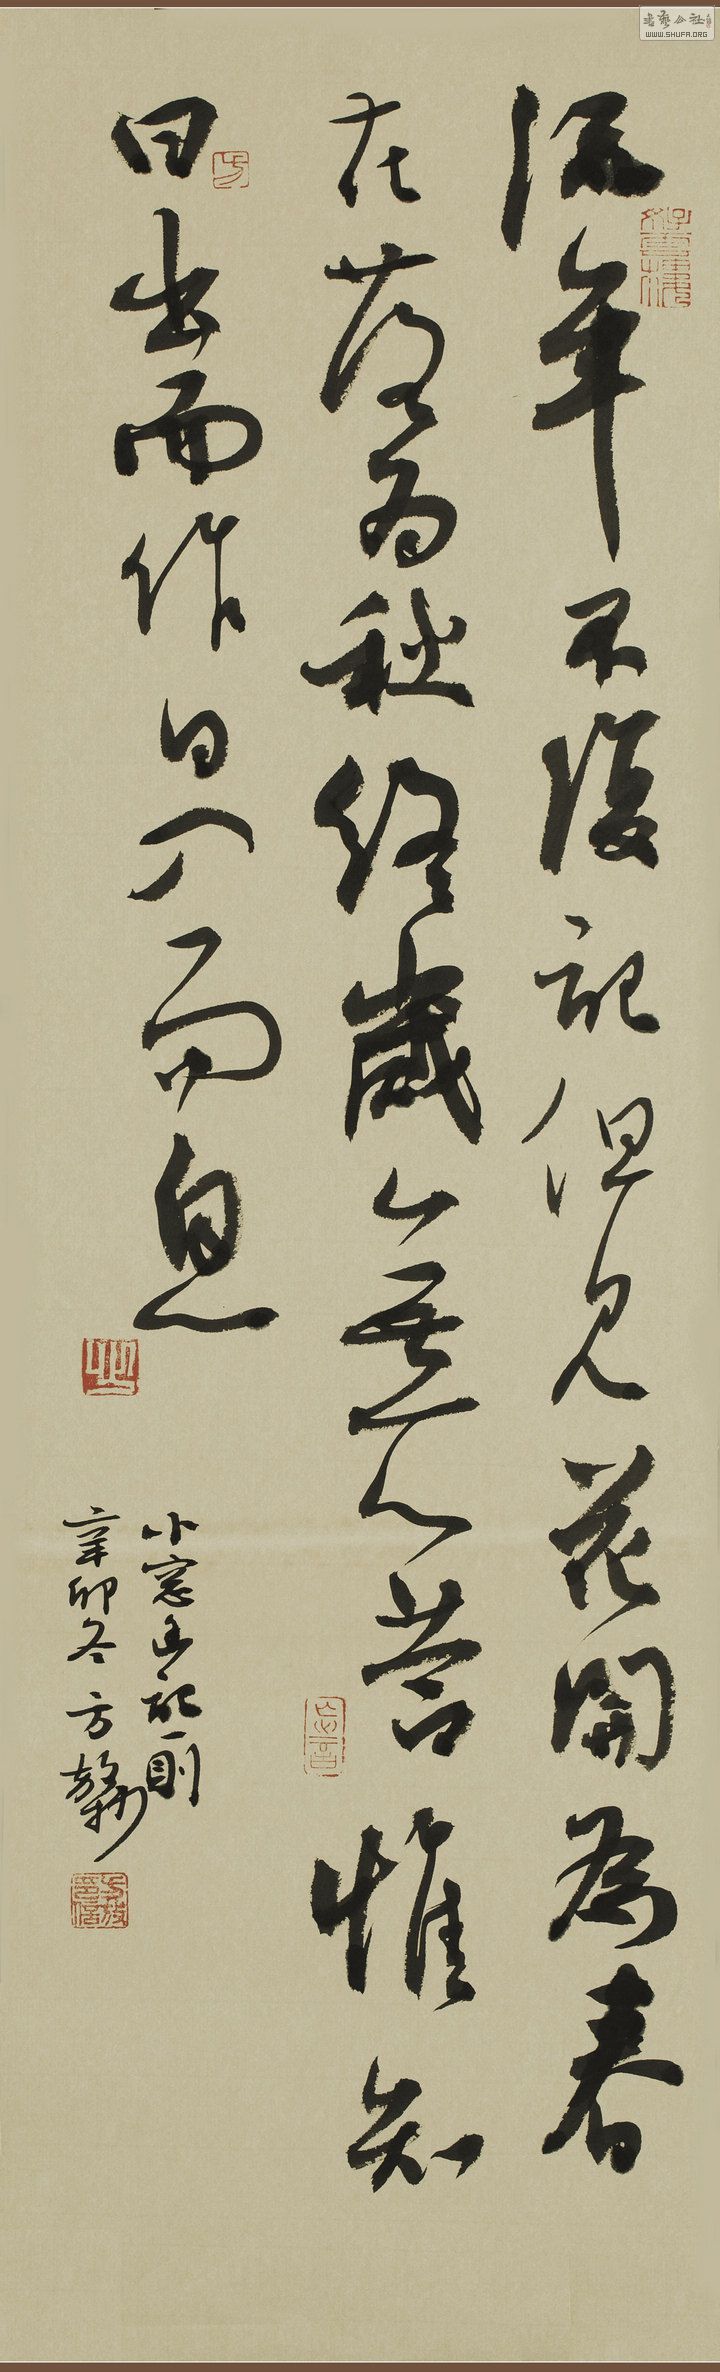 流年不復記但見花開為春
花落为秋終歲無所營惟知
日出而作日入而息
小窓幽記一則
辛卯冬方
書藝公社
WWW.SHUFA.ORG